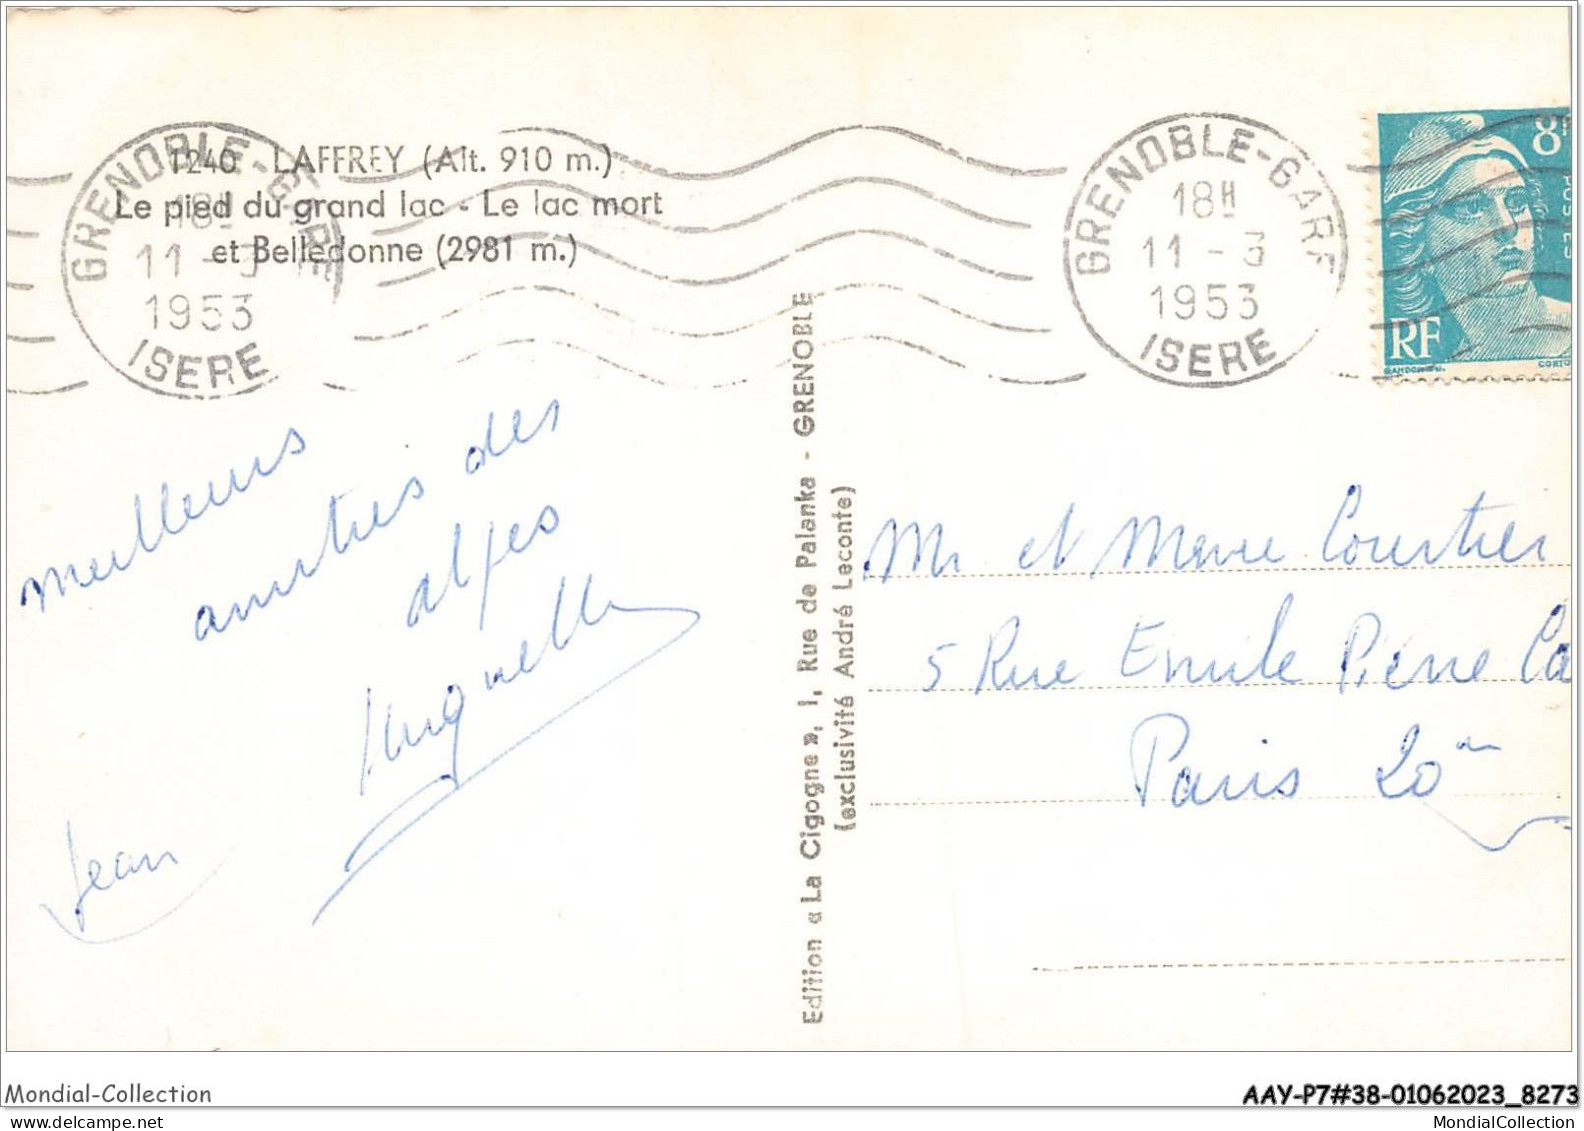 1240 LAFFREY (Alt. 910 m.)
Le pied du grand lac - Le lac mort
et Belledonne (2981 m.)
GRENOBLE-GARE
18H
11-3
1953
ISERE
GRENOBLE-GARE
18H
11-3
1953
ISERE
8F
POSTES
RF
GANDON
CORTO
meilleurs
amitiés des
alpes
Huguette
Jean
Edition « La Cigogne », 1, Rue de Palanka - GRENOBLE
(exclusivité André Leconte)
Mr et Mme Courtier
5 Rue Emile Pierre Ca
Paris 20
Mondial-Collection
AAY-P7#38-01062023_8273
MondialCollection